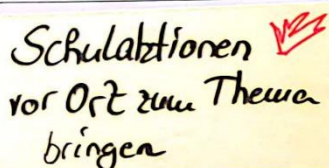 Schulaktionen
vor Ort zum Thema
bringen